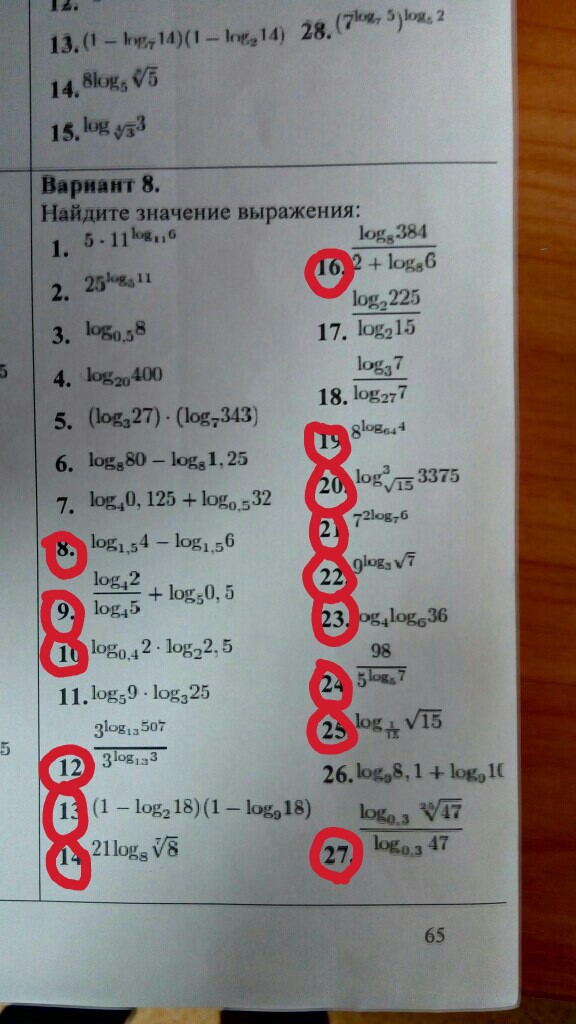 12.
13. (1 − log₇14)(1 − log₂14)
28. (7^{log₇ 5})^{log₅ 2}
14. 8log₅ ⁸√5
15. log_{⁴√3}3
Вариант 8.
Найдите значение выражения:
1. 5 · 11^{log₁₁6}
2. 25^{log₅11}
3. log₀,₅8
4. log₂₀400
5. (log₃27) · (log₇343)
6. log₈80 − log₈1, 25
7. log₄0, 125 + log₀,₅32
8. log₁,₅4 − log₁,₅6
9. log₄2 / log₄5 + log₅0, 5
10 log₀,₄2 · log₂2, 5
11. log₅9 · log₃25
12 3^{log₁₃507} / 3^{log₁₃3}
13 (1 − log₂18)(1 − log₉18)
14 21log₈ ⁷√8
16. log₈384 / 2 + log₈6
17. log₂225 / log₂15
18. log₃7 / log₂₇7
19 8^{log₆₄4}
20. log³_{√15} 3375
21 7^{2log₇6}
22. 9^{log₃ √7}
23. og₄log₆36
24 98 / 5^{log₅7}
25. log_{1/15} √15
26. log₉8, 1 + log₉10
27. log₀,₃ √47 / log₀,₃ 47
5
5
65